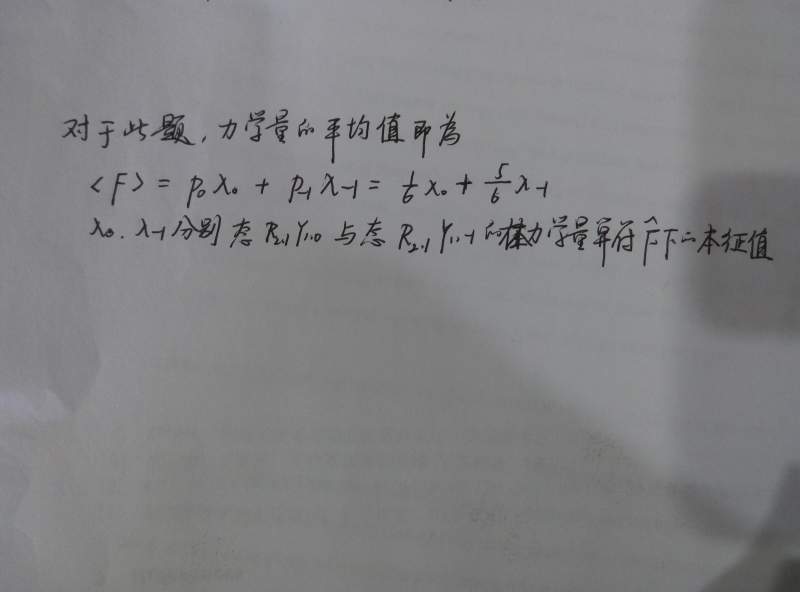 对于此题，力学量的平均值即為
<F> = p₀λ₀ + p₋₁λ₋₁ = 1/6 λ₀ + 5/6 λ₋₁
λ₀、λ₋₁分别态 R₂,₁Y₁,₀ 与态 R₂,₁Y₁,₋₁ 的力学量算符 F̂ 下的本征值